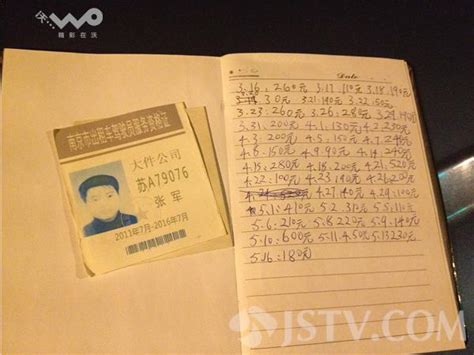 沃...
WO
精彩在沃
南京市出租车驾驶员服务资格证
大件公司
苏A79076
张军
2011年7月-2016年7月
Date
3.16:260元 3.17:110元 3.18.190元
30元 3.21.140元 3.22.150元
3.23:260元 3.26:280元 3.29.190元
3.31.200元 4.1.130元
4.3.200元
4.8.150元 4.9.90元
4.15:280元 4.18.200元 4.21.520元
4.22:100元 4.23.190元 4.26.20元
4.27.140元 4.29.190元
5.1:410元 5.2.310元 5.5.110元
5.6:210元 5.8.220元 5.9.140元
5.10:600元 5.11.450元 5.13.230元
5.16:180元
JSTV.COM